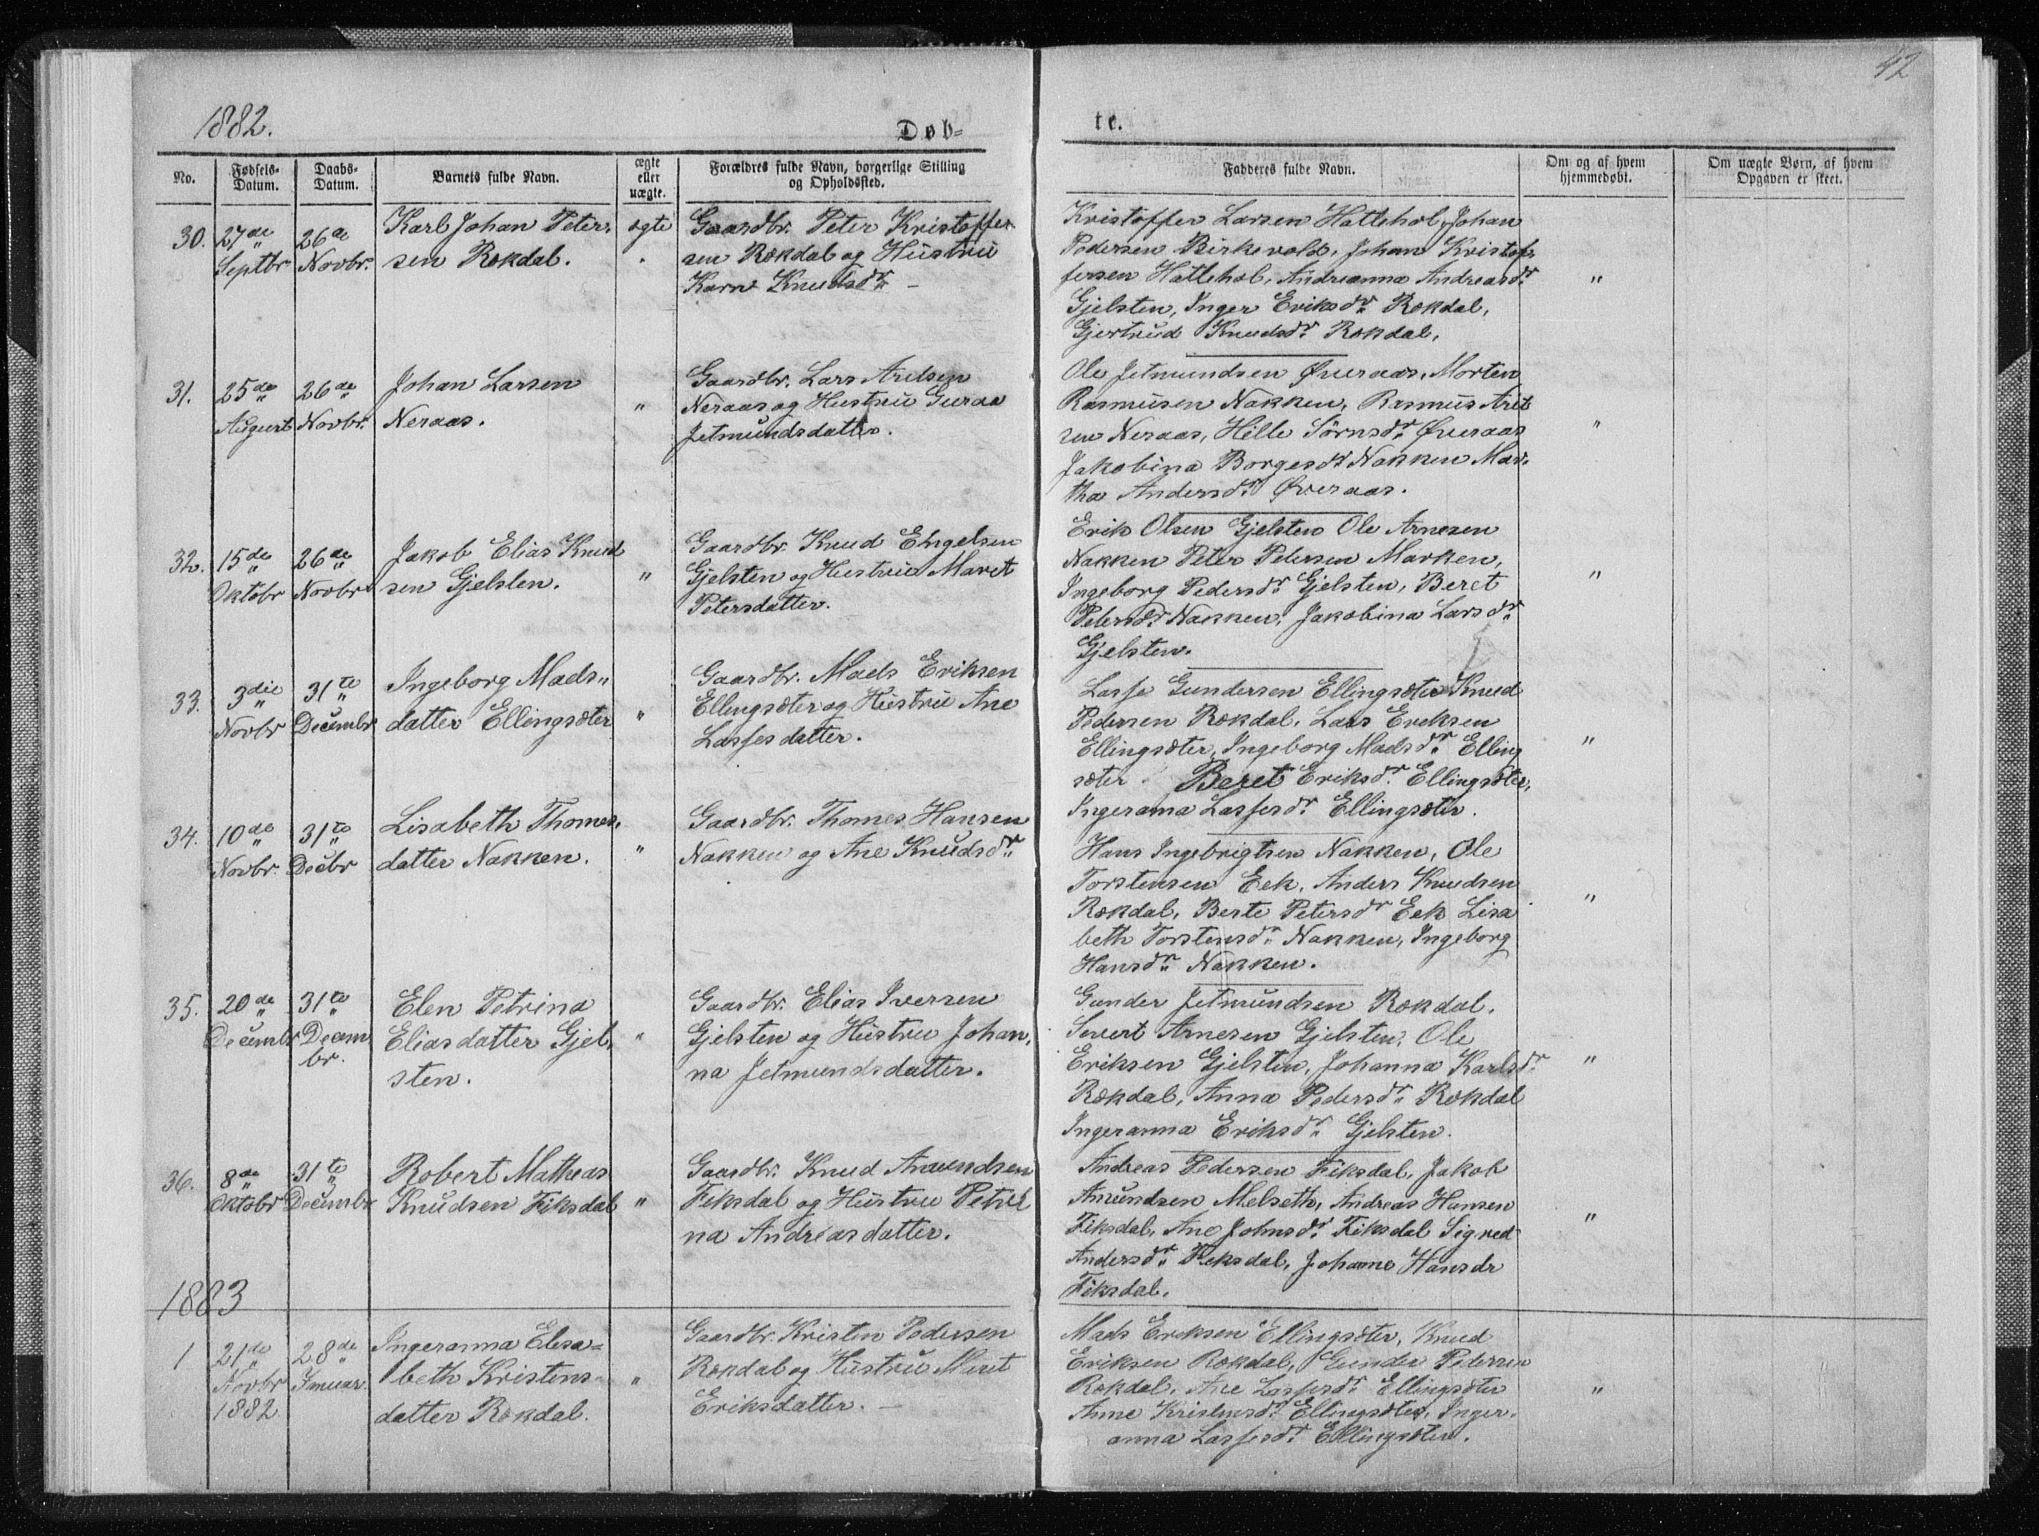 42
1882.
Døb-
te.
No.
Fødsels-
Datum.
Daabs-
Datum.
Barnets fulde Navn.
ægte
eller
uægte.
Forældres fulde Navn, borgerlige Stilling
og Opholdssted.
Fadderes fulde Navn.
Om og af hvem
hjemmedøbt.
Om uægte Børn, af hvem
Opgaven er skeet.
30.
27de
Septbr
26de
Novbr.
Karl Johan Peter-
sen Rekdal.
ægte
Gaardbr. Peter Kristoffer-
sen Rekdal og Hustru
Karn Knudsdr. -
Kristoffer Larsen Hattehol, Johan
Pedersen Birkevold, Johan Kristof-
fersen Hattehol, Andreanna Andreasdr
Gjelsten, Inger Eriksdr Rekdal,
Gjertrud Knudsdr Rekdal.
"
31.
25de
August
26de
Novbr.
Johan Larsen
Neraas.
"
Gaardbr. Lars Arelsen
Neraas og Hustru Guraa
Jetmundsdatter.
Ole Jetmundsen Øveraas, Morten
Rasmusen Nakken, Rasmus
sen Neraas, Hille Sörnsdr Øveraas
Jakobina Borgesdr Nakken Mar-
tha Andersdr Øveraas.
"
32.
15de
Oktobr
26de
Novbr
Jakob Elias Knud
sen Gjelsten.
"
Gaardbr. Knud Engelsen
Gjelsten og Hustru Maret
Petersdatter.
Erik Olsen Gjelsten Ole Arnesen
Nakken Peter Petersen Marken,
Ingeborg Pedersdr Gjelsten, Beret
Petersdr Nakken, Jakobina Larsdr
Gjelsten.
"
33.
3die
Novbr
31te
Decembr
Ingeborg Mads-
datter Ellingsæter
"
Gaardbr. Mads Eriksen
Ellingsæter og Hustru Ane
Lassesdatter.
Lasse Gundersen Ellingsæter Knud
Pedersen Rekdal, Lars Eriksen
Ellingsæter, Ingeborg Madsdr Elling
sæter Beret Eriksdr Ellingsæter,
Ingeranna Lassesdr Ellingsæter.
"
34.
10de
Novbr.
31te
Decbr
Lisabeth Thomes-
datter Nakken.
"
Gaardbr. Thomes Hansen
Nakken og Ane Knudsdr
Hans Ingebrigtsen Nakken, Ole
Torstensen Eek, Anders Knudsen
Rekdal, Berte Petersdr Eek Lisa
beth Torstensdr Nakken, Ingeborg
Hansdr Nakken.
"
35.
20de
Decembr
31te
Decem
br.
Elen Petrina
Eliasdatter Gjel-
sten.
"
Gaardbr. Elias Iversen
Gjelsten og Hustru Johan-
na Jetmundsdatter.
Gunder Jetmundsen Rekdal,
Sivert Arnesen Gjelsten, Ole
Eriksen Gjelsten, Johanna Karlsdr
Rekdal, Anna Pedersdr Rekdal
Ingeranna Eriksdr Gjelsten.
"
36.
8de
Oktobr
31te
Decembr
Robert Matheas
Knudsen Fiksdal
"
Gaardbr. Knud Amundsen
Fiksdal og Hustru Petri
na Andreasdatter.
Andreas Pedersen Fiksdal, Jakob
Amundsen Melseth, Andreas Hansen
Fiksdal, Ane Johnsdr Fiksdal Sigred
Andersdr Fiksdal, Johanne Hansdr
Fiksdal.
"
1883
1
21de
Novbr
1882
28de
Januar.
Ingeranna Elisa-
beth Kristens-
datter Rekdal.
"
Gaardbr. Kristen Pedersen
Rekdal og Hustru Maret
Eriksdatter. -
Mads Eriksen Ellingsæter, Knud
Eriksen Rekdal, Gunder Petersen
Rekdal, Ane Lassesdr Ellingsæter
Anne Kristensdr Ellingsæter, Inger-
anna Lassesdr Ellingsæter.
"